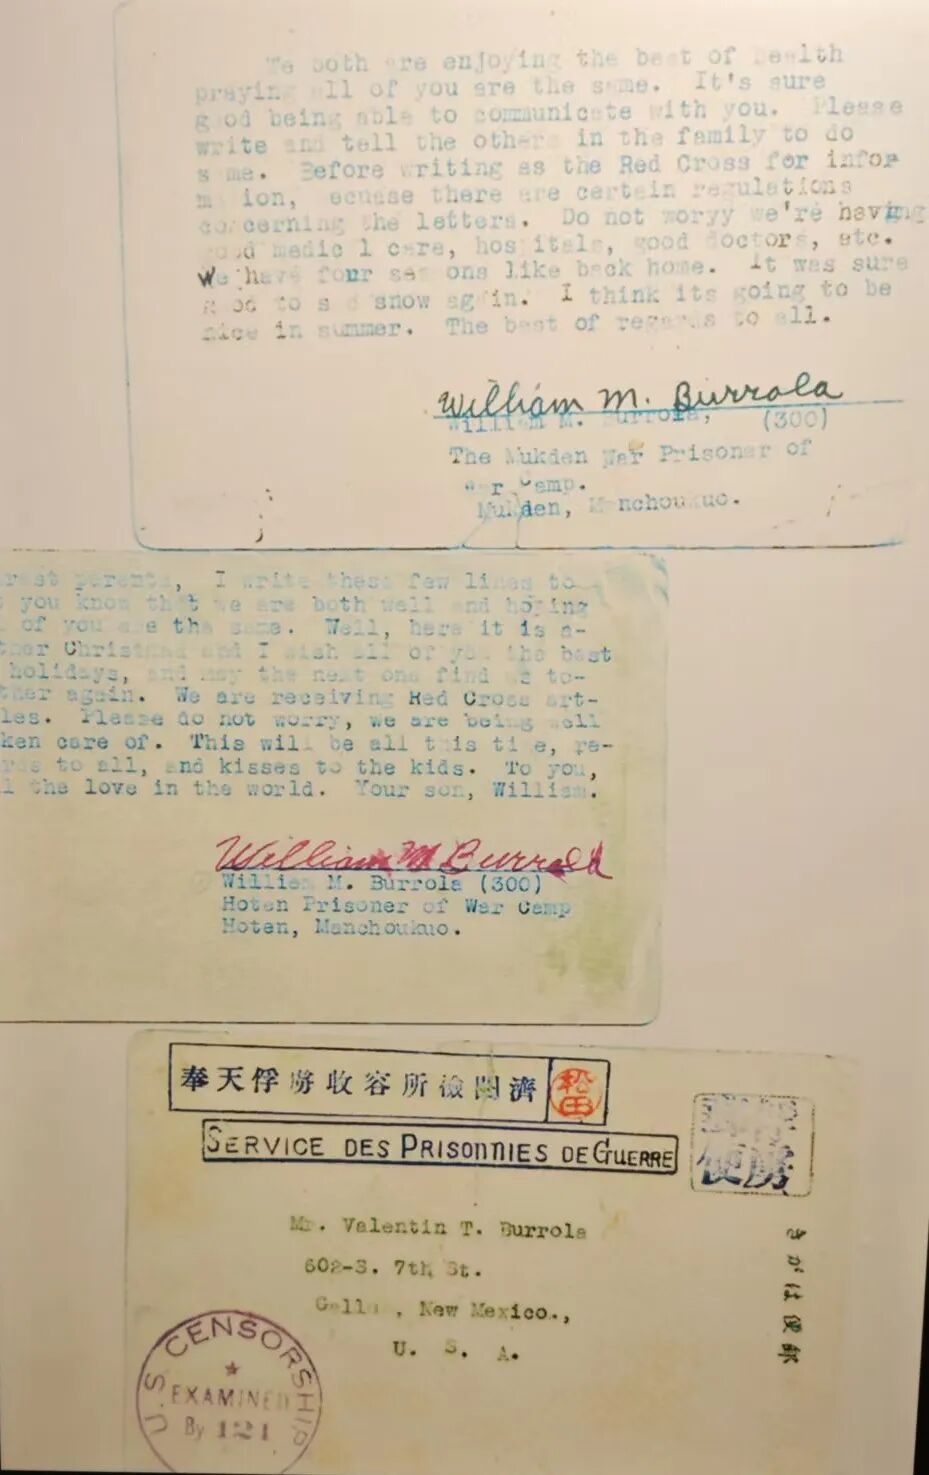 We both are enjoying the best of health
praying all of you are the same. It's sure
good being able to communicate with you. Please
write and tell the others in the family to do
same. Before writing as the Red Cross for infor
m ion, ecuase there are certain regulations
concerning the letters. Do not woryy we're having
good medic l care, hos itals, good doctors, etc.
We have four sea ons like back home. It was sure
good to s e snow again. I think its going to be
nice in summer. The best of regards to all.
William M. Burrola
William M. Burrola, (300)
The Mukden War Prisoner of
War Camp.
Mukden, Manchoukuo.
rest parents, I write these few lines to
you know that we are both well and hoping
of you are the same. Well, here it is a-
ther Christmas and I wish all of you the best
holidays, and may the next one find us to-
ther again. We are receiving Red Cross art-
les. Please do not worry, we are being well
ken care of. This will be all this time, re-
rds to all, and kisses to the kids. To you,
l the love in the world. Your son, William.
William M Burrola
William M. Burrola (300)
Hoten Prisoner of War Camp
Hoten, Manchoukuo.
奉天俘虜收容所檢閲濟 松田
SERVICE DES PRISONNIES DE GUERRE
俘虜郵便
Mr. Valentin T. Burrola
602-S. 7th St.
Gallup, New Mexico.,
U. S. A.
きがは便郵
U.S. CENSORSHIP
EXAMINED
By 121